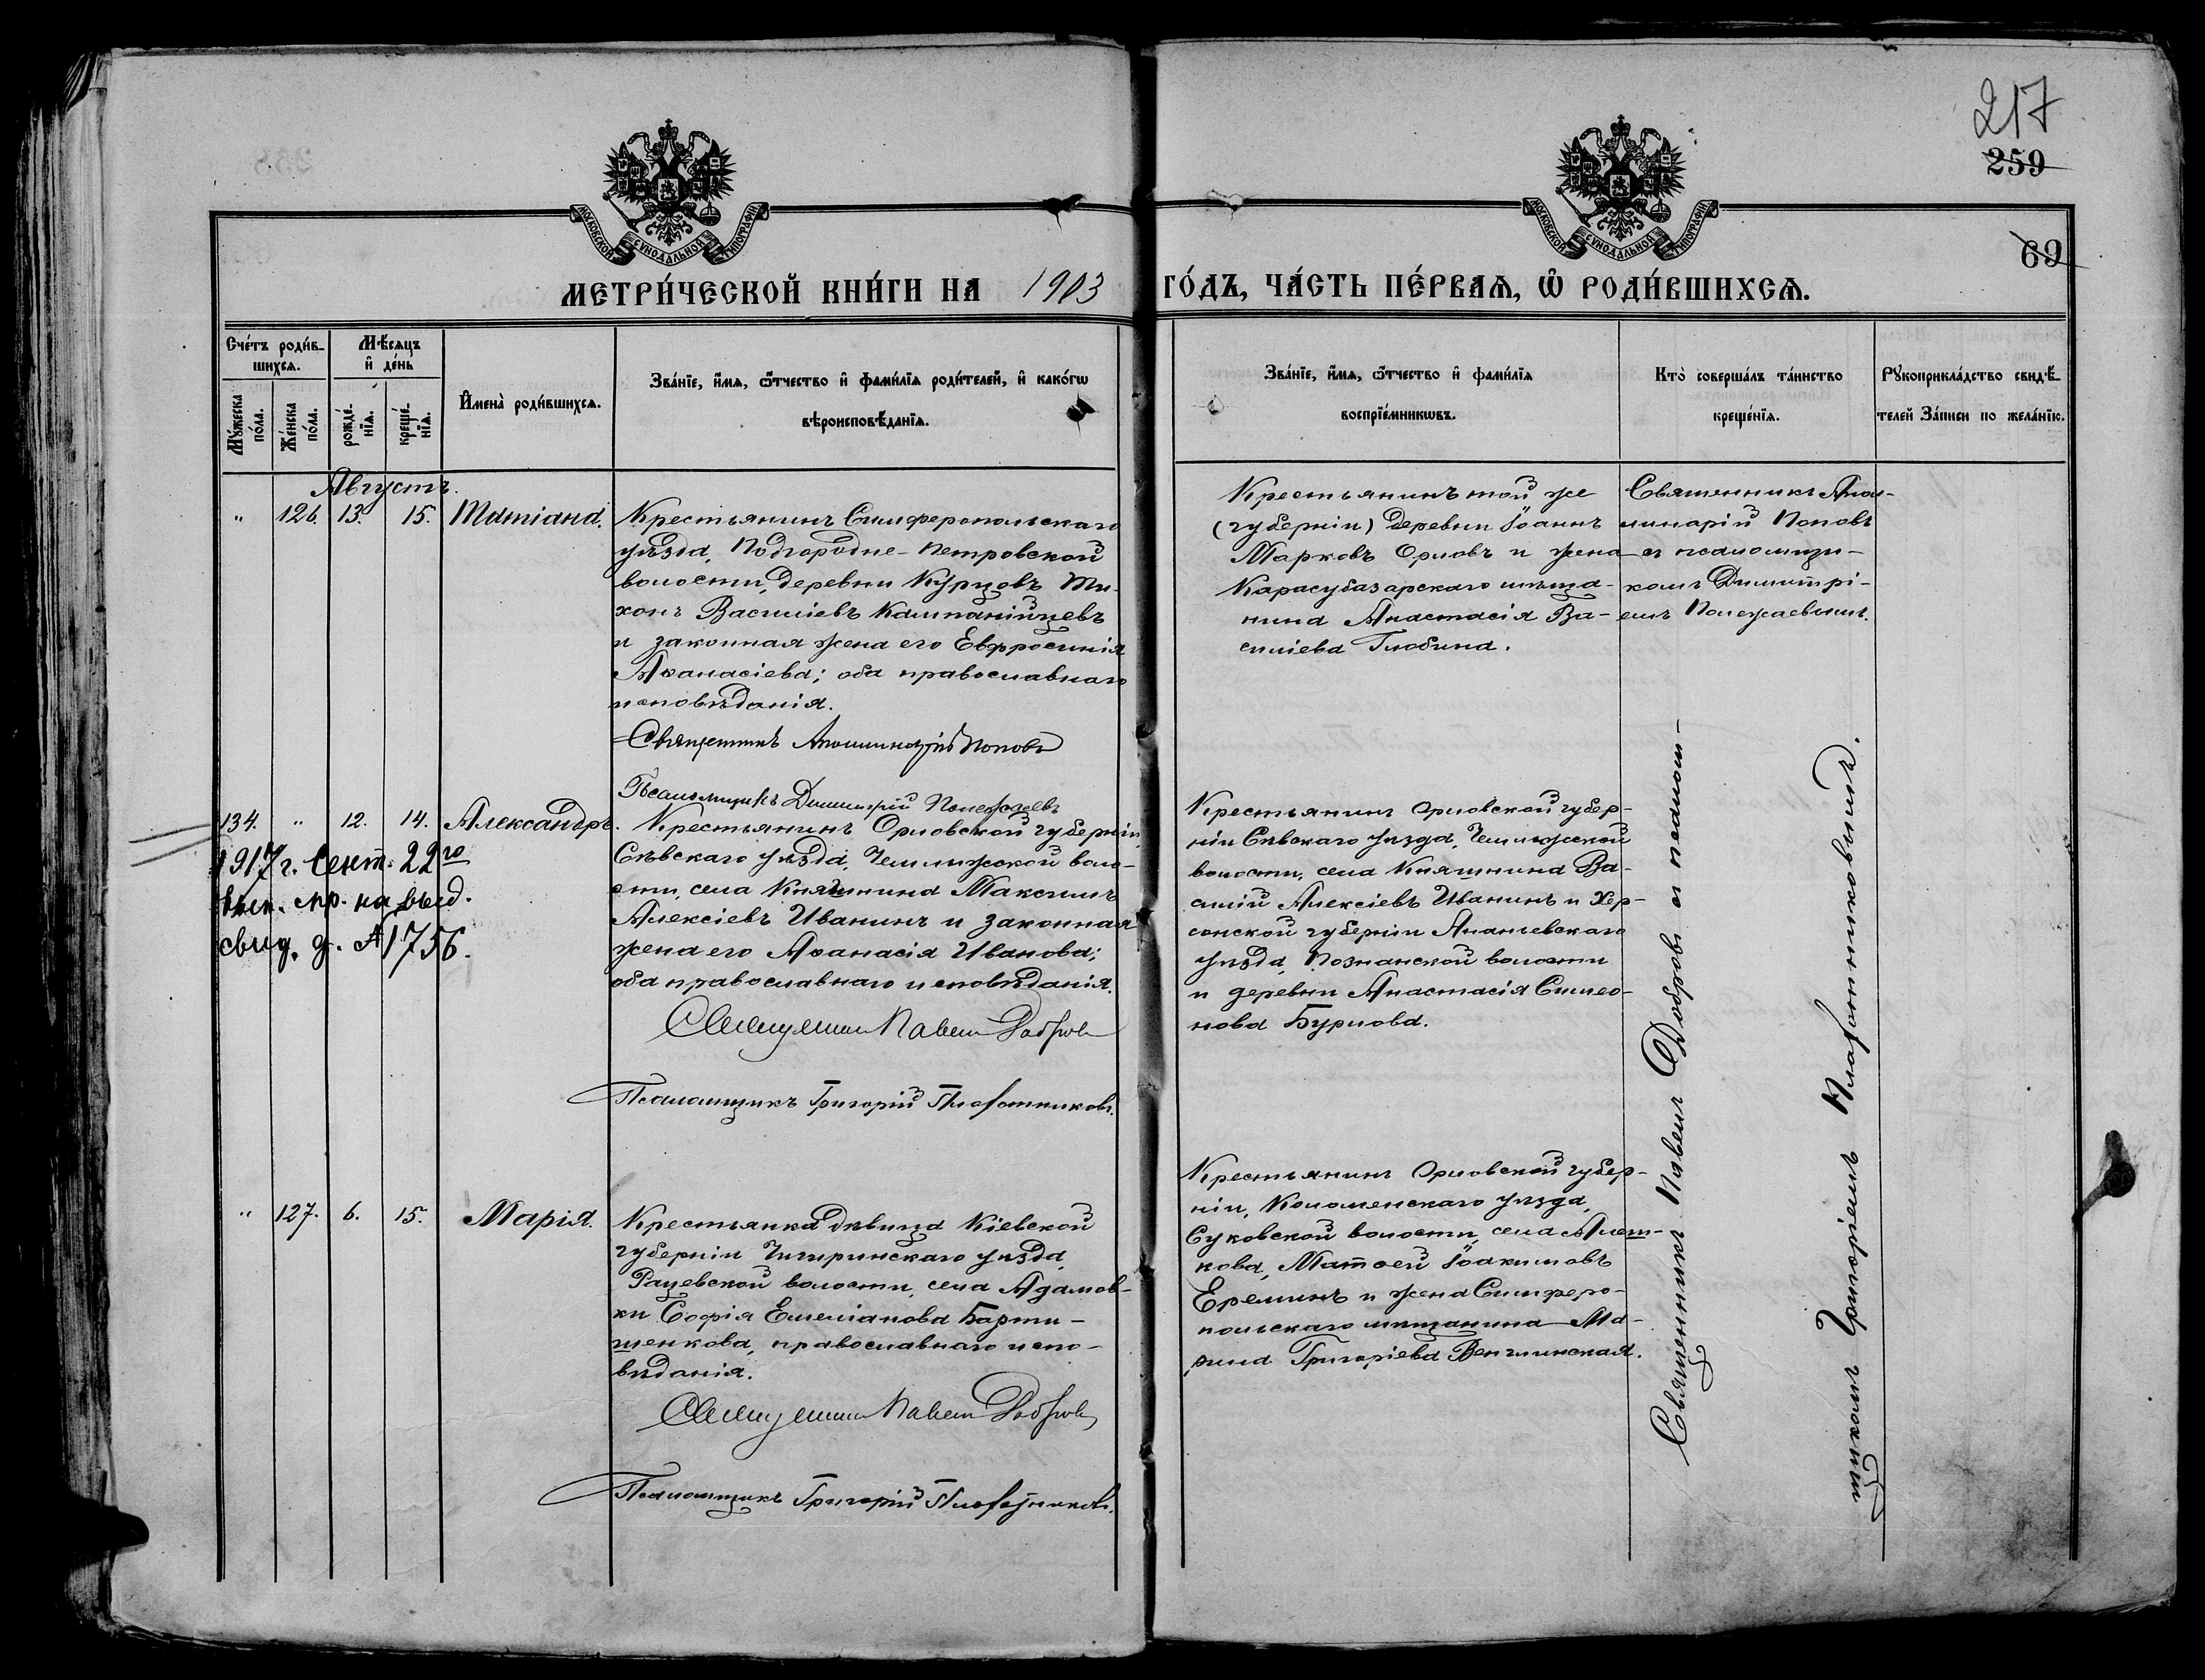 217
259
69
МОСКОВСКОЙ СѴНОДАЛЬНОЙ ТИПОГРАФІИ
МОСКОВСКОЙ СѴНОДАЛЬНОЙ ТИПОГРАФІИ
МЕТРИ́ЧЕСКОЙ КНИ́ГИ НА 1903 ГО́ДЪ, ЧА́СТЬ ПЕ́РВАѦ, Ѽ РОДИ́ВШИХСѦ.
Сче́тъ роди́в-
шихсѧ.
Мꙋ́жеска по́ла.
Же́нска по́ла.
Мѣ́сѧцъ
и҆ де́нь
рожде́-
нїѧ.
креще́-
нїѧ.
И҆мена̀ роди́вшихсѧ.
Зва́нїе, и҆́мѧ, ѻ҆́тчество и҆ фами́лїѧ роди́телей, и҆ како́гѡ
вѣроисповѣ́данїѧ.
Зва́нїе, и҆́мѧ, ѻ҆́тчество и҆ фами́лїѧ
воспрїе́мникѡвъ.
Кто̀ соверша́лъ та́инство
креще́нїѧ.
Рꙋкоприкла́дство свидѣ́-
телей За́писи по жела́нїю.
Августъ.
" 126. 13. 15. Татіана.
Крестьянинъ Симферопольскаго
уѣзда, Подгородне-Петровской
волости, деревни Курцовъ Ти-
хонъ Василіевъ Кампанійцевъ
и законная жена его Евфросинія
Аѳанасіева; оба православнаго
исповѣданія.
Священникъ Аполлинарій Поповъ
Псаломщикъ Димитрій Полежаевъ
Крестьянинъ той же
(губерніи) деревни Іоаннъ
Марковъ Орловъ и жена
Карасубазарскаго мѣща-
нина Анастасія Ва-
силіева Глобина.
Священникъ Апол-
линарій Поповъ
съ псаломщи-
комъ Димитрі-
емъ Полежаевымъ.
134. " 12. 14. Александръ.
1917 г. Сент. 22го
вып. пр. на выд.
свид. д. № 1756.
Крестьянинъ Орловской губерніи,
Сѣвскаго уѣзда, Чемлыжской воло-
сти, села Княгинина Максимъ
Алексіевъ Иванинъ и законная
жена его Аѳанасія Иванова;
оба православнаго исповѣданія.
Священникъ Павелъ Добровъ
Псаломщикъ Григорій Плотниковъ.
Крестьянинъ Орловской губер-
ніи Сѣвскаго уѣзда, Чемлыжской
волости, села Княгинина Ва-
силій Алексіевъ Иванинъ и Хер-
сонской губерніи Ананьевскаго
уѣзда, Познанской волости
и деревни Анастасія Симео-
нова Бурлова.
" 127. 6. 15. Марія.
Крестьянка дѣвица Кіевской
губерніи Чигиринскаго уѣзда,
Рацевской волости, села Адамов-
ки Софія Емеліанова Барти-
шенкова, православнаго испо-
вѣданія.
Священникъ Павелъ Добровъ
Псаломщикъ Григорій Плотниковъ.
Крестьянинъ Орловской губер-
ніи, Коломенскаго уѣзда,
Суковской волости, села Алеш-
кова, Матѳей Іоакимовъ
Ереминъ и жена Симферо-
польскаго мѣщанина Ма-
рина Григоріева Венглинская.
Священникъ Павелъ Добровъ съ псалом-
щикомъ Григоріемъ Плотниковымъ.